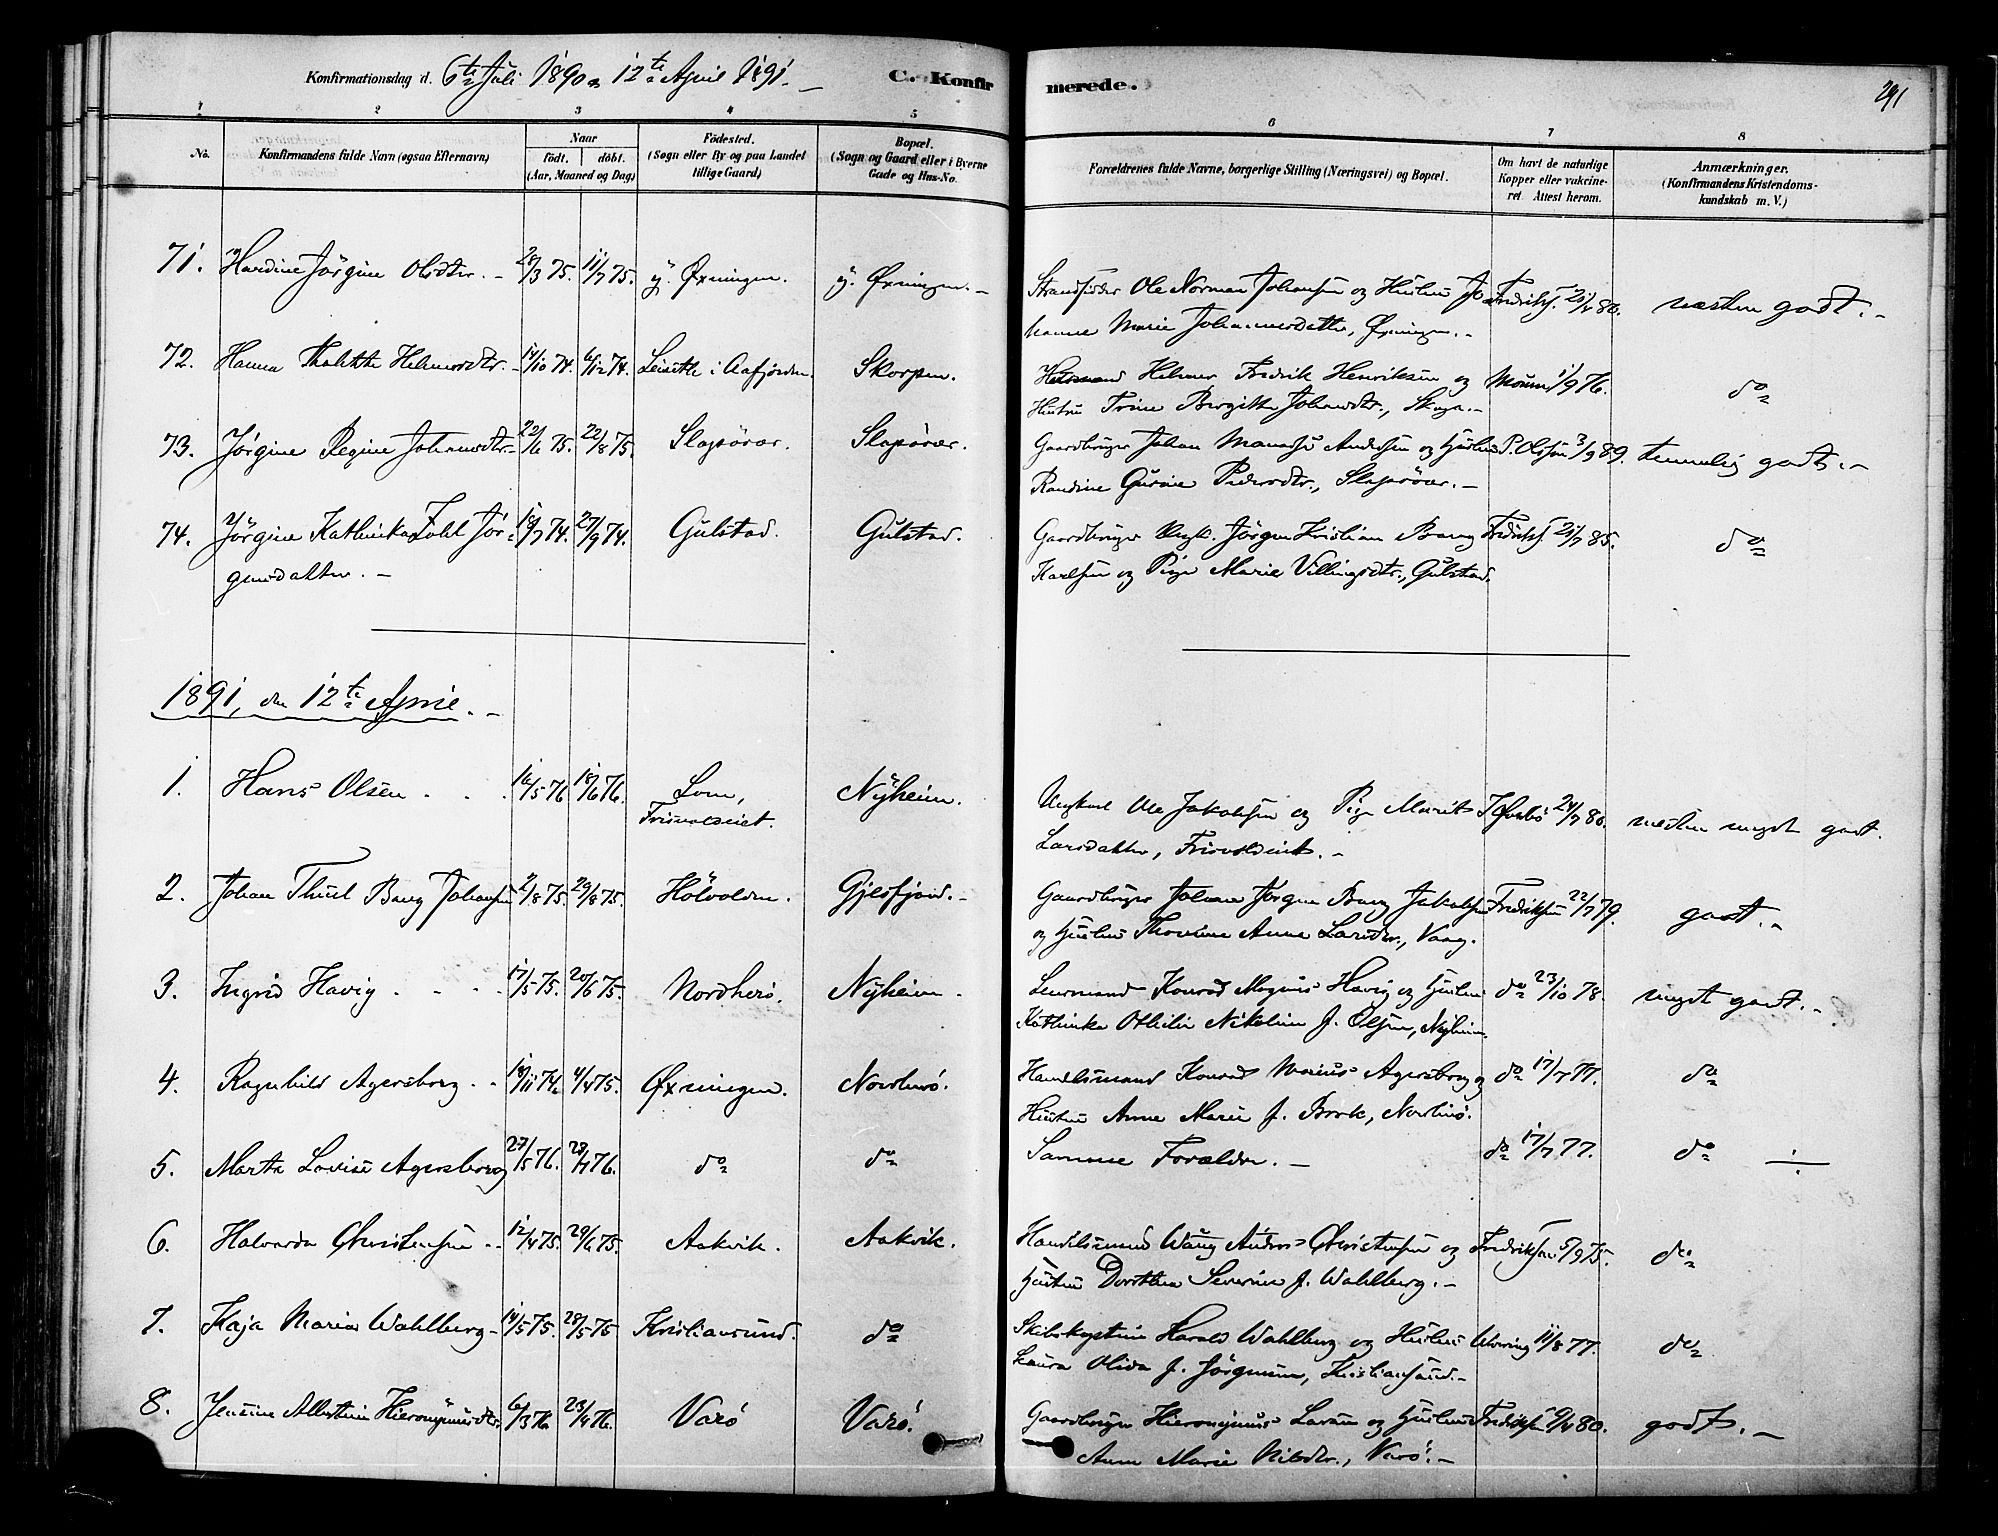 Konfirmationsdag d. 6te Juli 1890 12te April 1891.
C. Konfirmerede.
291
1 2 3 4 5 6 7 8
No.
Konfirmandens fulde Navn (ogsaa Efternavn)
Naar
födt. döbt.
(Aar, Maaned og Dag)
Födested.
(Sogn eller By og paa Landet
tillige Gaard)
Bopæl.
(Sogn og Gaard eller i Byerne
Gade og Hus-No.
Forældrenes fulde Navne, borgerlige Stilling (Næringsvei) og Bopæl.
Om havt de naturlige
Kopper eller vakcine-
ret Attest herom.
Anmærkninger.
(Konfirmandens Kristendoms-
kundskab m. V.)
71. Hardine Jörgine Olsdtr. 28/3 75. 11/7 75. y. Øxningen. y. Øxningen. Ole Norman Johansen og Hustru Jo- Fredriks. 21/7 80. næsten godt.
hanne Marie Johannesdatter, Øxningen.
72. Hanna Helmersdtr. 14/10 74. 6/12 74. i Aafjorden. Skorpen. Helmer Fredrik Henriksen og 1/9 76. do
Hustru Trine Bergitte
73. Jörgine Regine Johansdtr. 22/6 75. 22/8 75. Slapövær. Slapövær. Gaardbruger Johan Andersen og Hustru P. Olsen 3/9 89. temmelig godt.
Randine Gurine Pedersdtr., Slapövær.
74. Jörgine Kathinka Jör- 18/7 74. 27/9 74. Gulstad. Gulstad. Gaardbruger Ungk. Jörgen Kristian Bang Fredriks. 21/7 85. do
gensdatter.
Karlsen og Pige Marie Villingsdtr., Gulstad.
1891, den 12te April.
1. Hans Olsen 16/5 76 18/6 76. Lom, Nyheim. Ungkarl Ole Jakobsen og Pige Marit 24/7 80. næsten meget godt.
Frisvoldseiet. Larsdatter, Frisvoldeiet.
2. Johan Thue Bang Johansen 2/8 75. 29/8 75. Hölvolden. Gjelsfjord. Gaardbruger Johan Jörgen Bang Jakobsen Fredriksen 22/7 79. godt.
og Hustru Anne Larsdtr., Vaag.
3. Ingrid Havig 17/5 75. 20/6 75. Nordherö. Nyheim. Lensmand Konrad Magnus Havig og Hustru do 23/10 78. meget godt.
Kathinka Othilie Nikoline f. Olsen, Nyheim.
4. Ragnhild Agersborg 18/11 74. 4/4 75. Øxningen. Nordherö. Handelsmand Konrad Marius Agersborg og do 17/7 77. do
Hustru Anne Marie f. Nordherö.
5. Marta Lovise Agersborg 27/5 76. 23/7 76. do do Samme Forældre. do 17/7 77. do ÷
6. Halvarda Christensen 12/4 75. 29/6 75. Aakvik. Aakvik. Handelsmand Wang Andr. Christensen og Fredriksen 5/9 75. do
Hustru Dorothea Severine f. Wahlberg.
7. Kaja Maria Wahlberg 14/5 75. 28/5 75 Kristiansund. do Skibskaptein Harald Wahlberg og Hustru 11/8 77. do
Laura Oliva f. Jörgensen, Kristiansund.
8. Jensine Albertine Hieronymusdtr. 6/3 76 23/4 76. Varö Varö. Gaardbruger Hieronymus Larsen og Hustru Fredriksen 9/4 80. godt.
Anne Marie Nilsdtr., Varö.